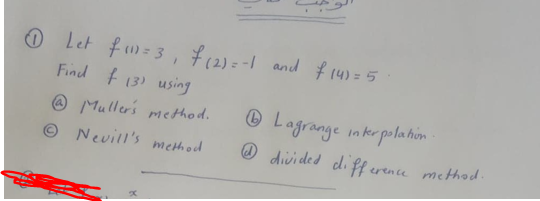 ① Let f(1)=3 , f(2)=-1 and f(4)=5 .
Find f(3) using
ⓐ Muller's method. ⓑ Lagrange interpolation.
ⓒ Nevill's method ⓓ divided difference method.
x